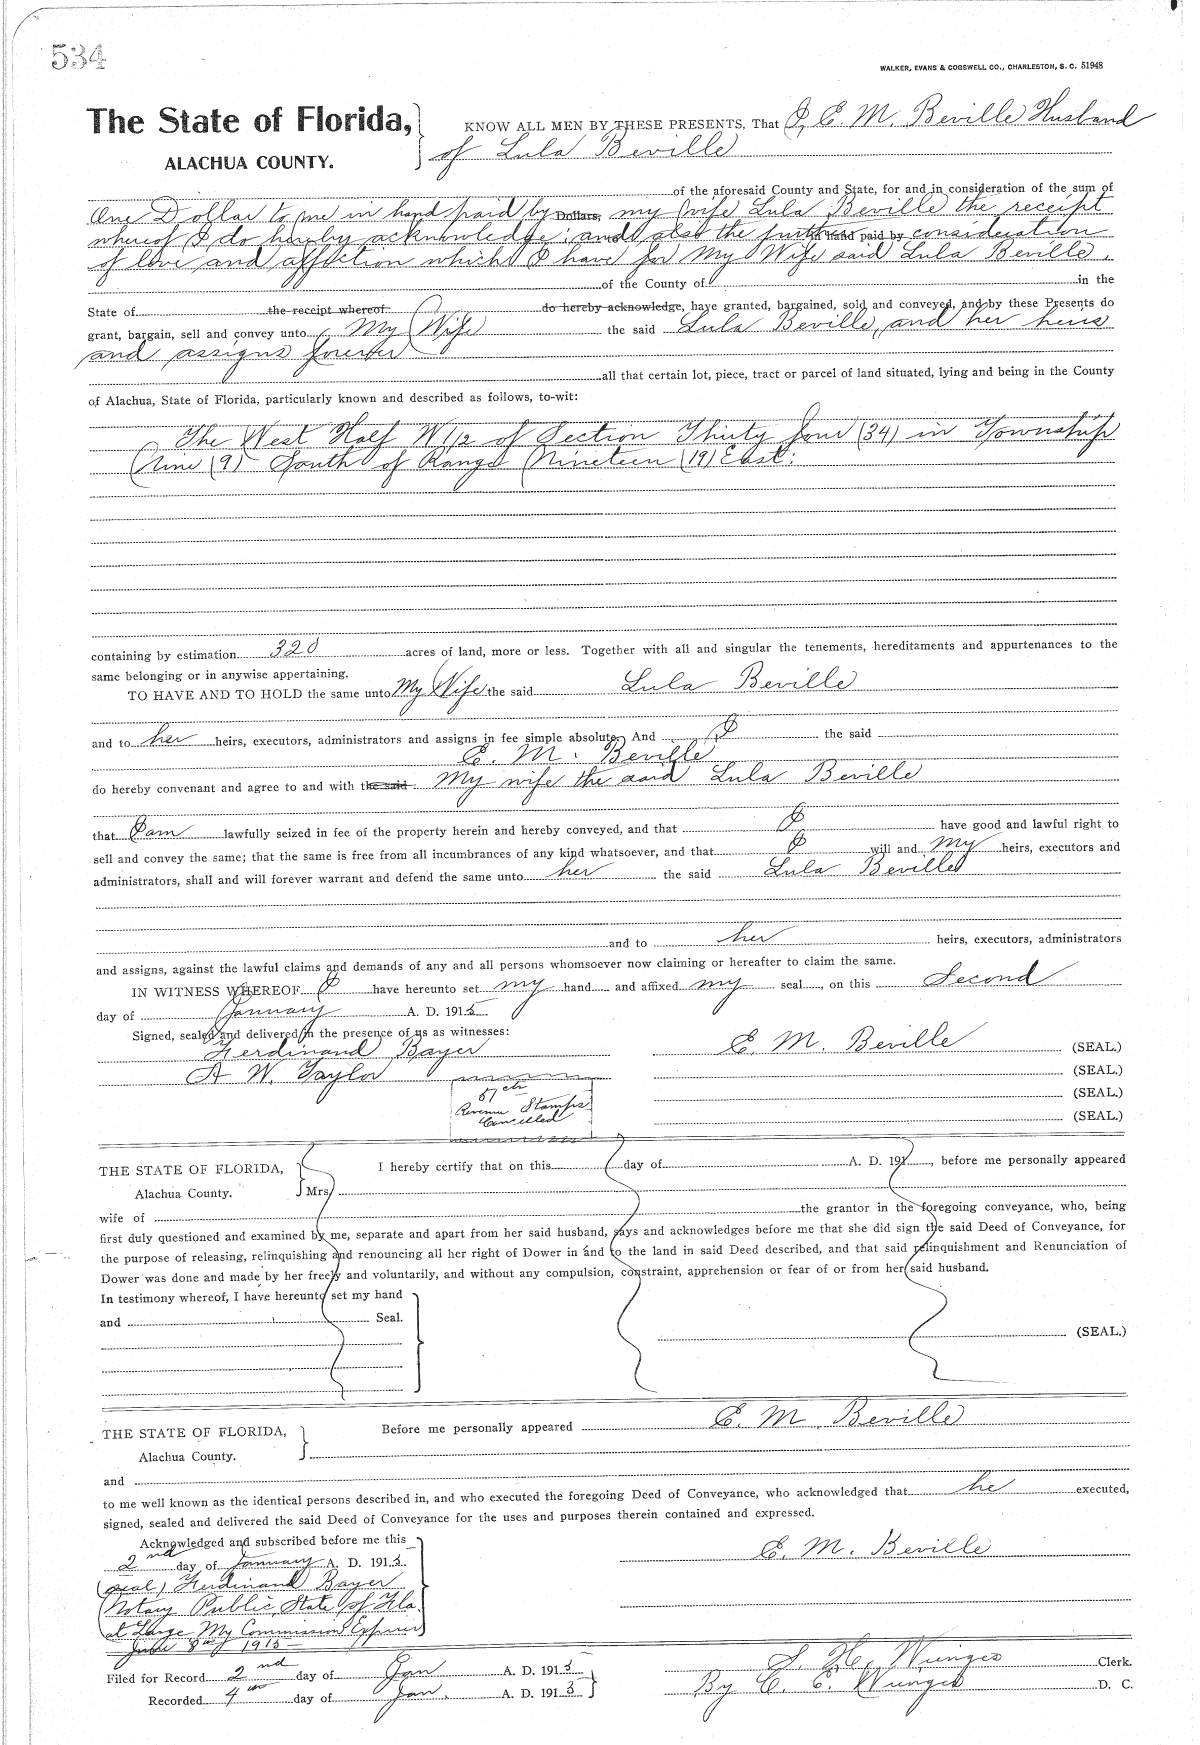 534
WALKER, EVANS & COGSWELL CO., CHARLESTON, S. C. 51948
The State of Florida,
ALACHUA COUNTY.
KNOW ALL MEN BY THESE PRESENTS, That I, E. M. Beville Husband
of Lula Beville
of the aforesaid County and State, for and in consideration of the sum of
One Dollar to me in hand paid by Dollars, my wife Lula Beville the receipt
whereof I do hereby acknowledge; and also the further in hand paid by consideration
of love and affection which I have for My Wife said Lula Beville,
of the County of in the
State of the receipt whereof do hereby acknowledge, have granted, bargained, sold and conveyed, and by these Presents do
grant, bargain, sell and convey unto My Wife the said Lula Beville, and her heirs
and assigns forever
all that certain lot, piece, tract or parcel of land situated, lying and being in the County
of Alachua, State of Florida, particularly known and described as follows, to-wit:
The West Half W 1/2 of Section Thirty four (34) in Township
Nine (9) South of Range Nineteen (19) East.
containing by estimation 320 acres of land, more or less. Together with all and singular the tenements, hereditaments and appurtenances to the
same belonging or in anywise appertaining.
TO HAVE AND TO HOLD the same unto My Wife the said Lula Beville
and to her heirs, executors, administrators and assigns in fee simple absolute. And I the said
E. M. Beville
do hereby convenant and agree to and with the said My wife the said Lula Beville
that I am lawfully seized in fee of the property herein and hereby conveyed, and that I have good and lawful right to
sell and convey the same; that the same is free from all incumbrances of any kind whatsoever, and that I will and My heirs, executors and
administrators, shall and will forever warrant and defend the same unto her the said Lula Beville
and to her heirs, executors, administrators
and assigns, against the lawful claims and demands of any and all persons whomsoever now claiming or hereafter to claim the same.
IN WITNESS WHEREOF I have hereunto set my hand and affixed my seal, on this Second
day of January A. D. 191
Signed, sealed and delivered in the presence of us as witnesses:
Ferdinand Bayer
A W. Taylor
E. M. Beville (SEAL.)
(SEAL.)
(SEAL.)
(SEAL.)
57 cts
Revenue Stamps
Cancelled
THE STATE OF FLORIDA,
Alachua County.
I hereby certify that on this day of A. D. 191 , before me personally appeared
Mrs.
wife of the grantor in the foregoing conveyance, who, being
first duly questioned and examined by me, separate and apart from her said husband, says and acknowledges before me that she did sign the said Deed of Conveyance, for
the purpose of releasing, relinquishing and renouncing all her right of Dower in and to the land in said Deed described, and that said relinquishment and Renunciation of
Dower was done and made by her freely and voluntarily, and without any compulsion, constraint, apprehension or fear of or from her said husband.
In testimony whereof, I have hereunto set my hand
and Seal.
(SEAL.)
THE STATE OF FLORIDA,
Alachua County.
Before me personally appeared E. M. Beville
and
to me well known as the identical persons described in, and who executed the foregoing Deed of Conveyance, who acknowledged that he executed,
signed, sealed and delivered the said Deed of Conveyance for the uses and purposes therein contained and expressed.
Acknowledged and subscribed before me this
2nd day of January A. D. 1913.
E. M. Beville
(seal) Ferdinand Bayer
Notary Public, State of Fla.
at Large My Commission Expires
June 1915
Filed for Record 2nd day of Jan A. D. 1913
Recorded 4th day of Jan. A. D. 1913
S. H. Wienges Clerk.
By E. E. Wienges D. C.